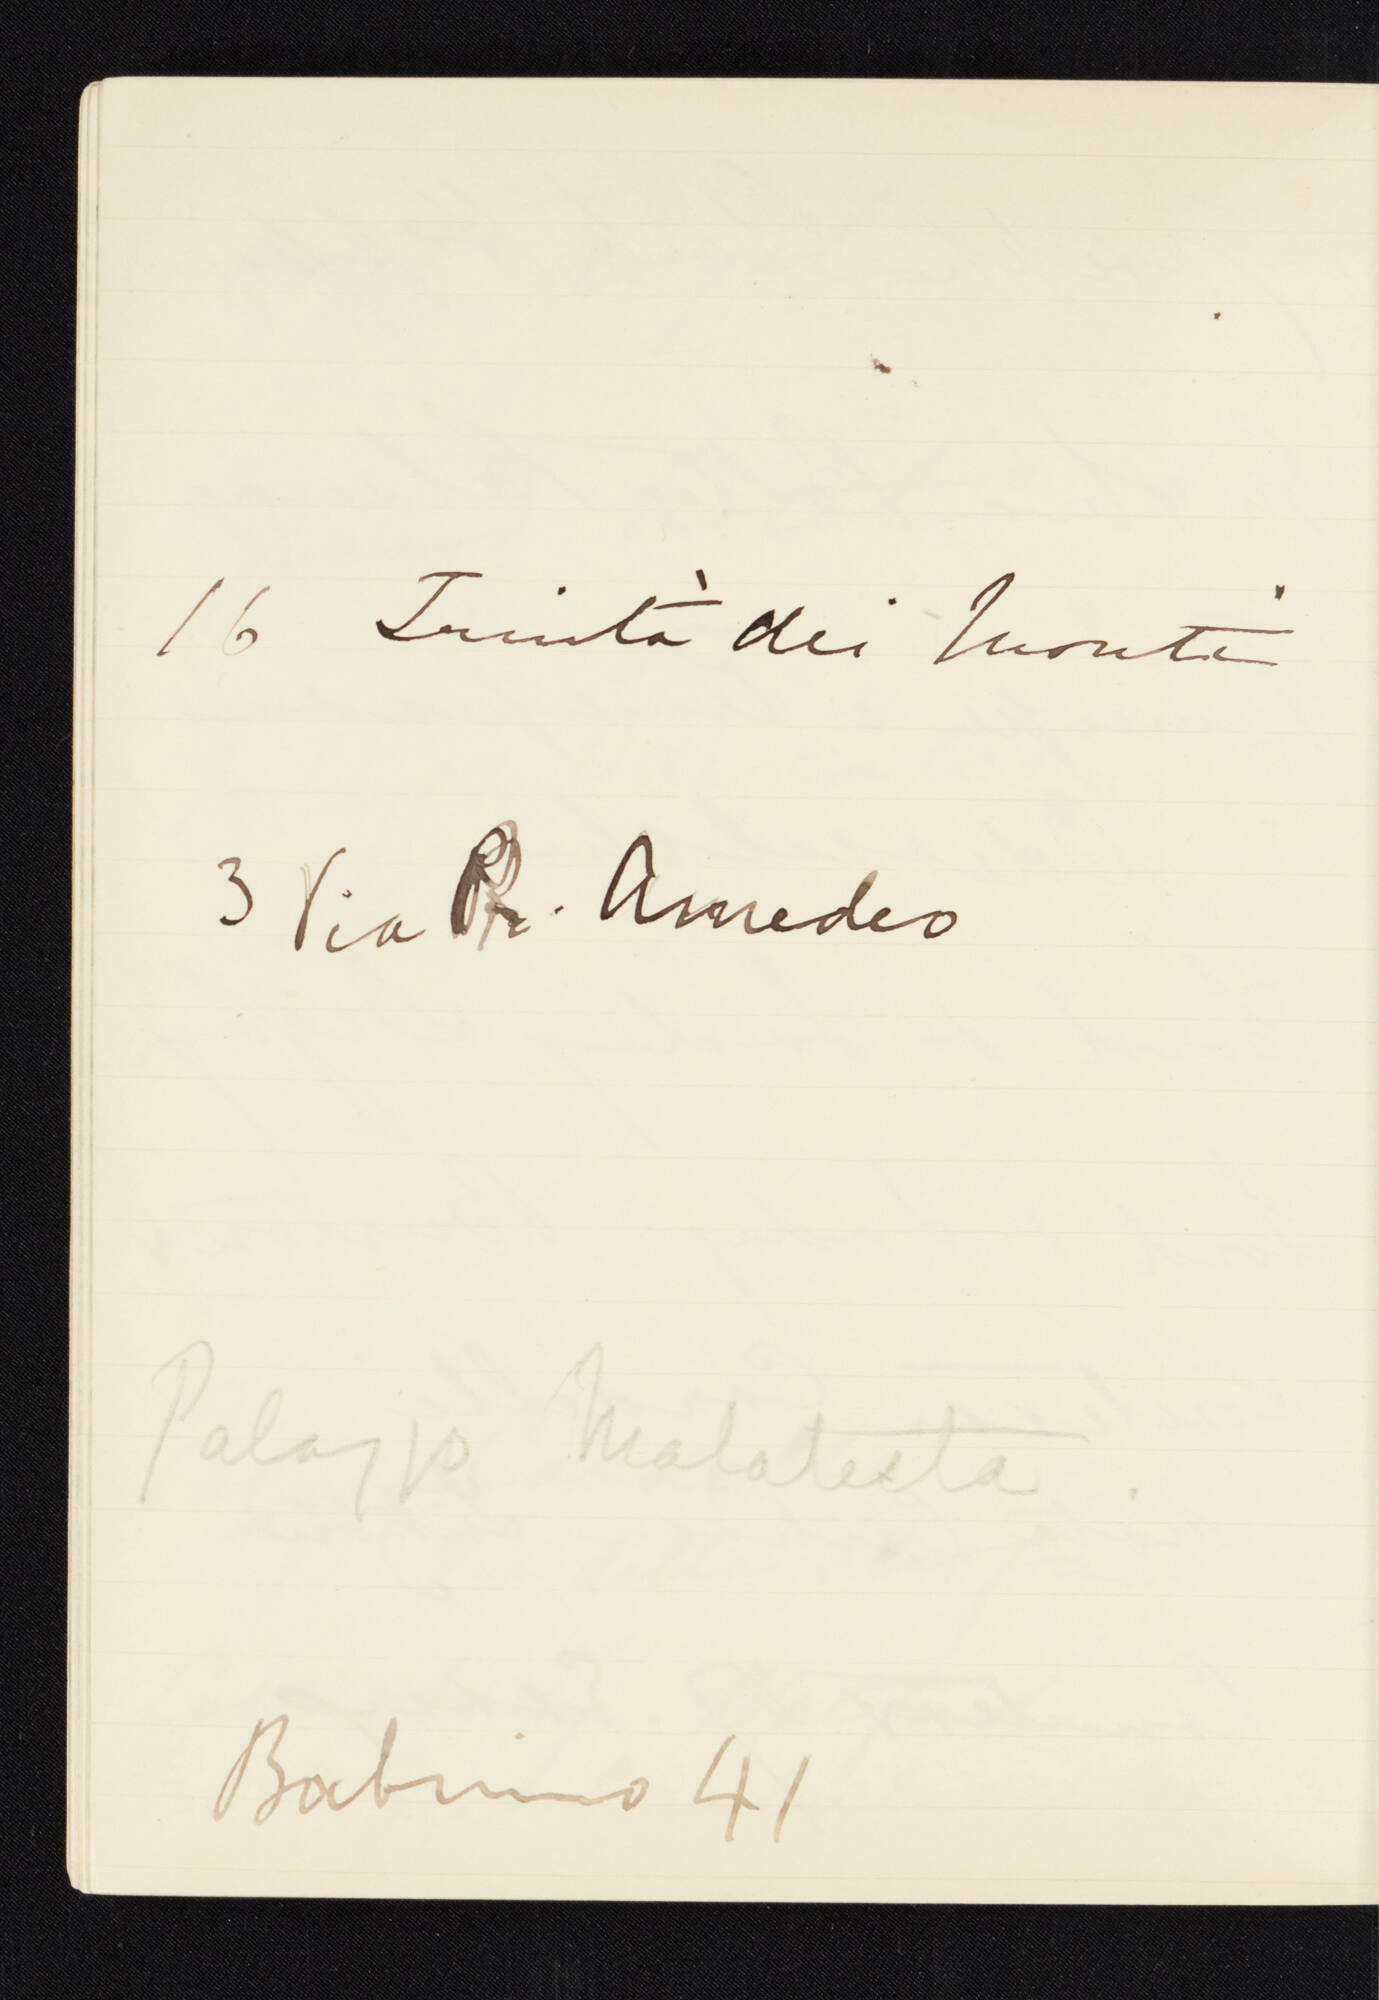 16 Trinità dei Monti
3 Via Pr. Amedeo
Palazzo Malatesta.
Babuino 41